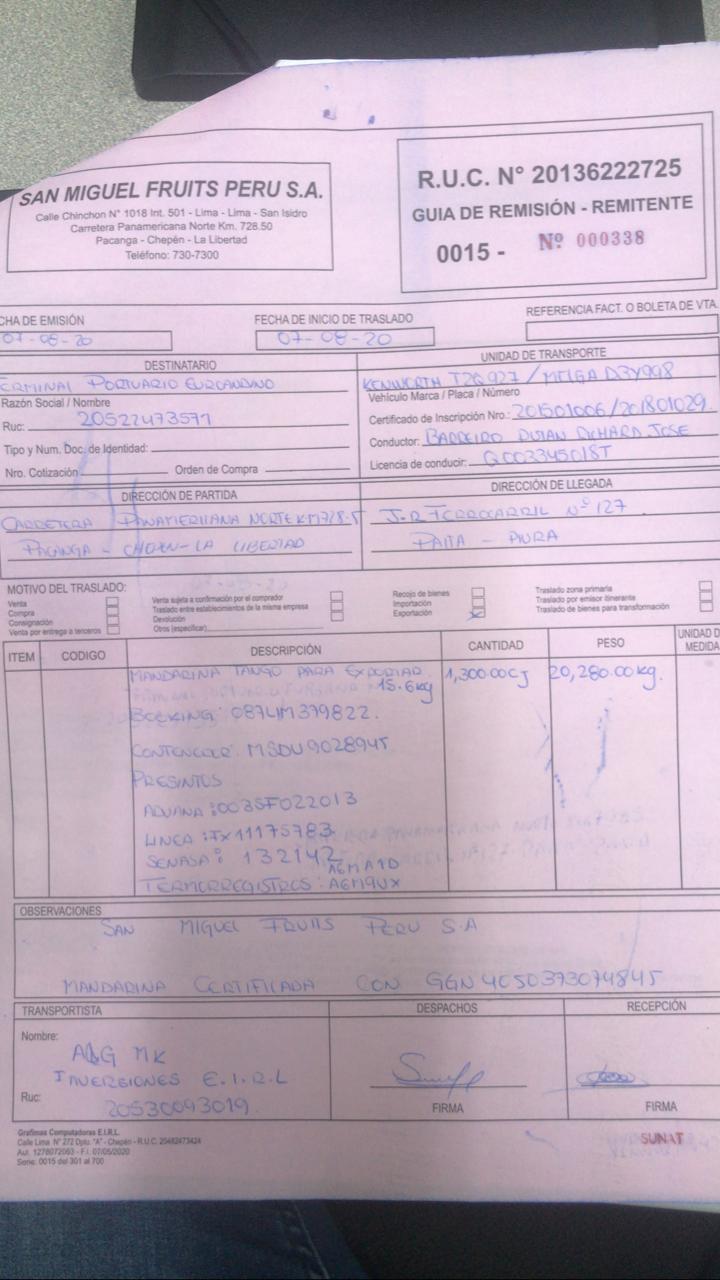 SAN MIGUEL FRUITS PERU S.A.
Calle Chinchon N° 1018 Int. 501 - Lima - Lima - San Isidro
Carretera Panamericana Norte Km. 728.50
Pacanga - Chepén - La Libertad
Teléfono: 730-7300
R.U.C. N° 20136222725
GUIA DE REMISIÓN - REMITENTE
0015 - Nº 000338
CHA DE EMISIÓN
07-08-20
FECHA DE INICIO DE TRASLADO
07-08-20
REFERENCIA FACT. O BOLETA DE VTA.
DESTINATARIO
ERMINAL PORTUARIO EUROANDINO
Razón Social / Nombre
Ruc: 20522473571
Tipo y Num. Doc. de Identidad:
Nro. Cotización Orden de Compra
UNIDAD DE TRANSPORTE
KENWORTH T2G927 / MELGA D3Y998
Vehículo Marca / Placa / Número
Certificado de Inscripción Nro.: 201501006/201801029.
Conductor: BARREIRO RICHARD JOSE
Licencia de conducir:
DIRECCIÓN DE PARTIDA
CARRETERA PANAMERICANA NORTE KM728.5
PACANGA - CHEPEN - LA LIBERTAD
DIRECCIÓN DE LLEGADA
J-R FERROCARRIL Nº 127
PAITA - PIURA
MOTIVO DEL TRASLADO:
Venta
Compra
Consignación
Venta por entrega a terceros
Venta sujeta a confirmación por el comprador
Traslado entre establecimientos de la misma empresa
Devolución
Otros (especificar)
Recojo de bienes
Importación
Exportación X
Traslado zona primaria
Traslado por emisor itinerante
Traslado de bienes para transformación
ITEM CODIGO DESCRIPCIÓN CANTIDAD PESO UNIDAD D
MEDIDA
MANDARINA TANGO PARA EXPORTAD 1,300.00CJ 20,280.00kg.
15.6kg
BOOKING: 087LIM379822.
CONTENEDOR: MSDU9028945
PRESINTOS
ADUANA: 003SF022013
LINEA: FX11175783
SENASA: 132142
A6MA1D
TERMORREGISTROS: A6M9UX
OBSERVACIONES
SAN MIGUEL FRUITS PERU S.A
MANDARINA CERTIFICADA CON GGN 4050373074845
TRANSPORTISTA
Nombre: A&G MK
INVERSIONES E.I.R.L
Ruc: 20530093019
DESPACHOS
FIRMA
RECEPCIÓN
FIRMA
Grafimas Computadoras E.I.R.L.
Calle Lima N° 272 Dpto. "A" - Chepén - R.U.C. 20482473424
Aut. 1278072063 - F.I. 07/05/2020
Serie: 0015 del 301 al 700
SUNAT